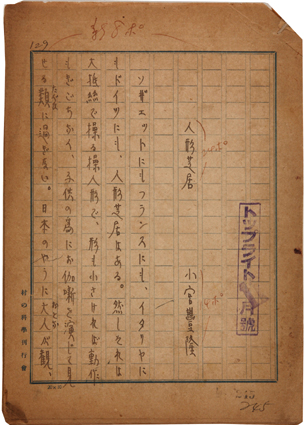 新デポ
129
トップライト
月號
人形芝居
小宮豐隆
ソヴェットにもフランスにも、イタリヤに
もドイツにも、人形芝居はある。然しそれは
大抵絲で操る操人形で、形も小さければ動作
もぎごちなく、子供の為にお伽噺を演じて見
せる類に過ぎない。日本のやうに大人が觀、
村の科學刊行會
245